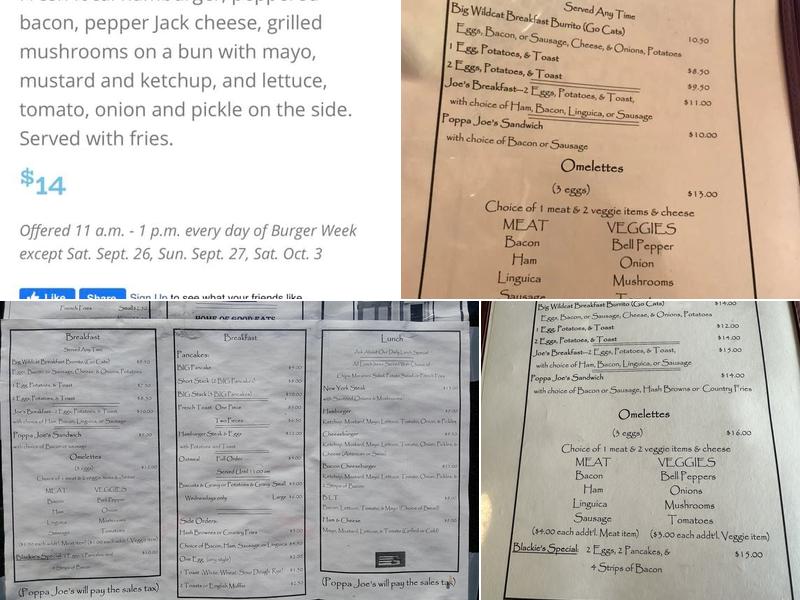 bacon, pepper Jack cheese, grilled
mushrooms on a bun with mayo,
mustard and ketchup, and lettuce,
tomato, onion and pickle on the side.
Served with fries.
$14
Offered 11 a.m. - 1 p.m. every day of Burger Week
except Sat. Sept. 26, Sun. Sept. 27, Sat. Oct. 3
Like Share Sign Up to see what your friends like.
Served Any Time
Big Wildcat Breakfast Burrito (Go Cats) 10.50
Eggs, Bacon, or Sausage, Cheese, & Onions, Potatoes
1 Egg, Potatoes, & Toast $8.50
2 Eggs, Potatoes, & Toast $9.50
Joe's Breakfast—2 Eggs, Potatoes, & Toast, $11.00
with choice of Ham, Bacon, Linguica, or Sausage
Poppa Joe's Sandwich $10.00
with choice of Bacon or Sausage
Omelettes
(3 eggs) $13.00
Choice of 1 meat & 2 veggie items & cheese
MEAT VEGGIES
Bacon Bell Pepper
Ham Onion
Linguica Mushrooms
Sausage
French Fries
HOME OF GOOD EATS
Breakfast
Served Any Time
Big Wildcat Breakfast Burrito (Go Cats)
Eggs, Bacon or Sausage, Cheese, & Onions, Potatoes
1 Egg, Potatoes, & Toast
2 Eggs, Potatoes, & Toast
Joe's Breakfast - 2 Eggs, Potatoes, & Toast
with choice of Ham, Bacon, Linguica, or Sausage
Poppa Joe's Sandwich
with choice of Bacon or sausage
Omelettes
(3 eggs)
Choice of 1 meat & 2 veggie items & cheese
MEAT VEGGIES
Bacon Bell Pepper
Ham Onion
Linguica Mushrooms
Sausage Tomatoes
Blackie's Special:
4 Strips of Bacon
(Poppa Joe's will pay the sales tax)
Breakfast
Pancakes:
BIG Pancake
Short Stack (2 BIG Pancakes)
BIG Stack (3 BIG Pancakes)
French Toast One Piece
Two Pieces
Hamburger Steak & Eggs
with Potatoes and Toast
Oatmeal Full Order
Served Until 11:00 am
Biscuits & Gravy or Potatoes & Gravy Small
Wednesdays only Large
Side Orders:
Hash Browns or Country Fries
Choice of Bacon, Ham, Sausage, or Linguica
One Egg (any style)
1 Toast (White, Wheat, Sour Dough, Rye)
2 Toasts or English Muffin
Lunch
Ask About Our Daily Lunch Special
New York Steak
with Sautéed Onions & Mushrooms
Hamburger
Ketchup, Mustard, Mayo, Lettuce, Tomato, Onion, & Pickles
Cheeseburger
Ketchup, Mustard, Mayo, Lettuce, Tomato, Onion, Pickles, &
Cheese (American or Swiss)
Bacon Cheeseburger
Ketchup, Mustard, Mayo, Lettuce, Tomato, Onion, Pickles, &
2 Strips of Bacon
B L T
Bacon, Lettuce, Tomato, & Mayo (Choice of Bread)
Ham & Cheese
Mayo, Mustard, Lettuce, & Tomato (Grilled or Cold)
(Poppa Joe's will pay the sales tax)
Big Wildcat Breakfast Burrito (Go Cats) $14.00
Eggs, Bacon, or Sausage, Cheese, & Onions, Potatoes
1 Egg, Potatoes, & Toast $12.00
2 Eggs, Potatoes, & Toast $14.00
Joe's Breakfast—2 Eggs, Potatoes, & Toast, $15.00
with choice of Ham, Bacon, Linguica, or Sausage
Poppa Joe's Sandwich $14.00
with choice of Bacon or Sausage, Hash Browns or Country Fries
Omelettes
(3 eggs) $16.00
Choice of 1 meat & 2 veggie items & cheese
MEAT VEGGIES
Bacon Bell Peppers
Ham Onions
Linguica Mushrooms
Sausage Tomatoes
($4.00 each addtl. Meat item) ($3.00 each addtl. Veggie item)
Blackie's Special: 2 Eggs, 2 Pancakes, & $15.00
4 Strips of Bacon